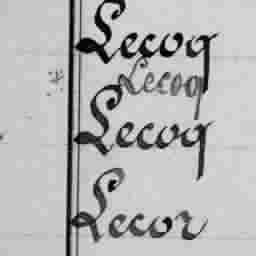 Lecoq
Lecoq
Lecoq
Lecor